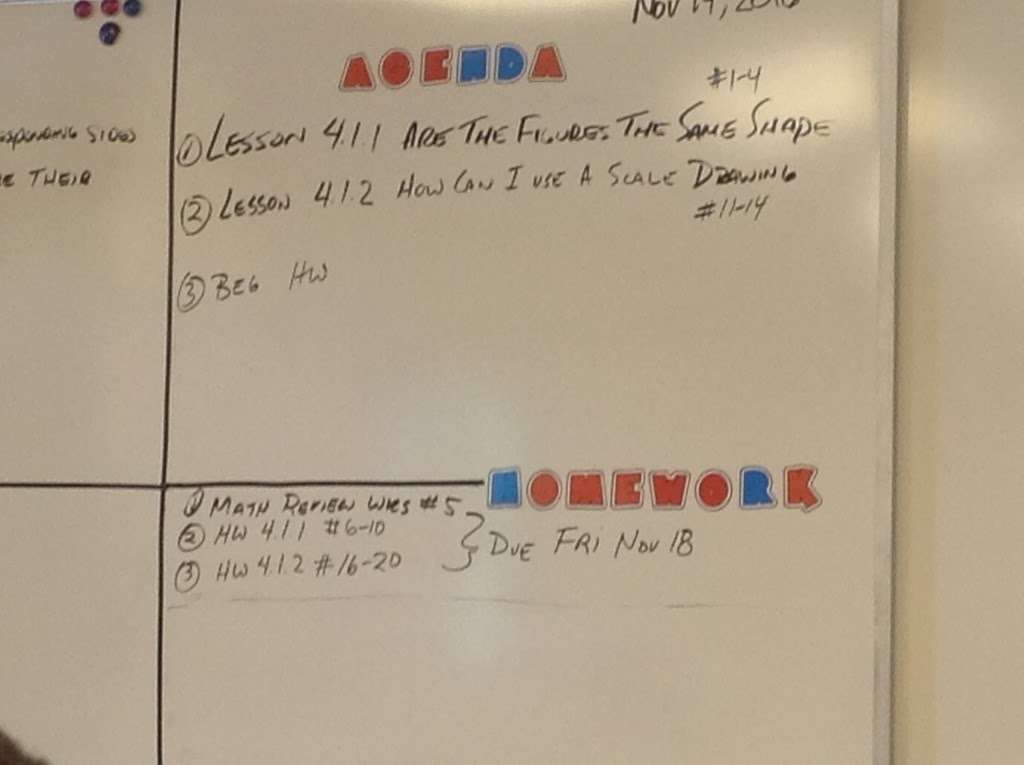 Nov 17, 2016
AGENDA
#1-4
① LESSON 4.1.1 ARE THE FIGURES THE SAME SHAPE
② LESSON 4.1.2 HOW CAN I USE A SCALE DRAWING
#11-14
③ BEG HW
SIDES
THEIR
HOMEWORK
① MATH REVIEW WKS #5
② HW 4.1.1 #6-10
③ HW 4.1.2 #16-20
DUE FRI NOV 18